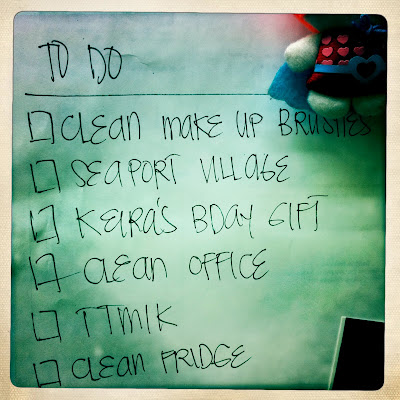 TO DO
CLEAN MAKE UP BRUSHES
SEAPORT VILLAGE
KEIRA'S BDAY GIFT
CLEAN OFFICE
TTMIK
CLEAN FRIDGE